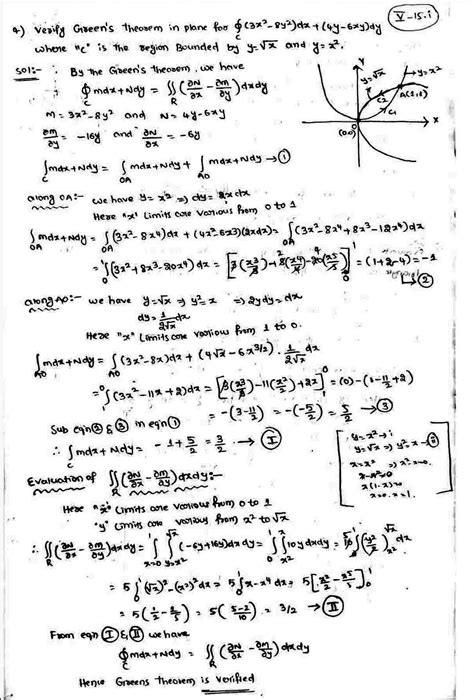 V-15.i
4) Verify Green's theorem in plane for ∮c (3x²-8y²)dx+(4y-6xy)dy
where "c" is the region Bounded by y=√x and y=x².
Sol:- By the Green's theorem, we have
∮c mdx+Ndy = ∬R (∂N/∂x - ∂m/∂y) dxdy
M=3x²-8y² and N=4y-6xy
∂m/∂y = -16y and ∂N/∂x = -6y
y=√x
y=x²
A(1,1)
C2
C1
(0,0)
Y
X
∫c mdx+Ndy = ∫OA mdx+Ndy + ∫AO mdx+Ndy → ①
along OA:- we have y=x² ⇒ dy=2xdx
Here "x" limits are various from 0 to 1
∫OA mdx+Ndy = ∫OA (3x²-8x⁴)dx + (4x²-6x³)(2xdx) = ∫OA (3x²-8x⁴+8x³-12x⁴)dx
= ∫0^1 (3x²+8x³-20x⁴)dx = [3(x³/3)+8(x⁴/4)-20(x⁵/5)]0^1 = (1+2-4) = -1 → ②
along AO:- we have y=√x ⇒ y²=x ⇒ 2ydy=dx
dy = 1/2√x dx
Here "x" limits are various from 1 to 0.
∫AO mdx+Ndy = ∫AO (3x²-8x)dx + (4√x-6x^3/2) . 1/2√x dx
= ∫1^0 (3x²-11x+2)dx = [3(x³/3)-11(x²/2)+2x]1^0 = (0)-(1-11/2+2)
= -(3-11/2) = -(-5/2) = 5/2 → ③
Sub eqn ② & ③ in eqn ①
∴ ∫c mdx+Ndy = -1+5/2 = 3/2 → Ⓘ
y=x² → i
y=√x ⇒ y²=x → ②
x=0, x=1.
Evaluation of ∬R (∂N/∂x - ∂m/∂y) dxdy:-
Here "x" limits are various from 0 to 1
"y" limits are various from x² to √x
∴ ∬R (∂N/∂x - ∂m/∂y) dxdy = ∫x=0^1 ∫y=x²^√x (-6y+16y)dxdy = ∫0^1 ∫x²^√x 10y dxdy = 10 ∫0^1 (y²/2)x²^√x dx
= 5 ∫0^1 (√x)²-(x²)² dx = 5 ∫0^1 x-x⁴ dx = 5 [x²/2 - x⁵/5]0^1
= 5(1/2 - 1/5) = 5(5-2/10) = 3/2 → Ⓘ Ⓘ
From eqn Ⓘ & Ⓘ Ⓘ we have
∮c mdx+Ndy = ∬R (∂N/∂x - ∂m/∂y) dxdy
Hence Greens theorem is verified